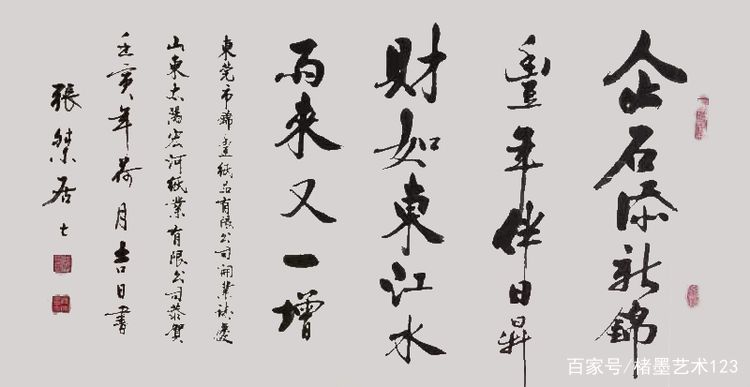 企石添新錦
豐年伴日昇
財如東江水
雨來又一增
東莞市錦豐紙品有限公司開業誌慶
山東太陽宏河紙業有限公司恭賀
壬寅年荷月吉日書
張 居士
百家号/楮墨艺术123